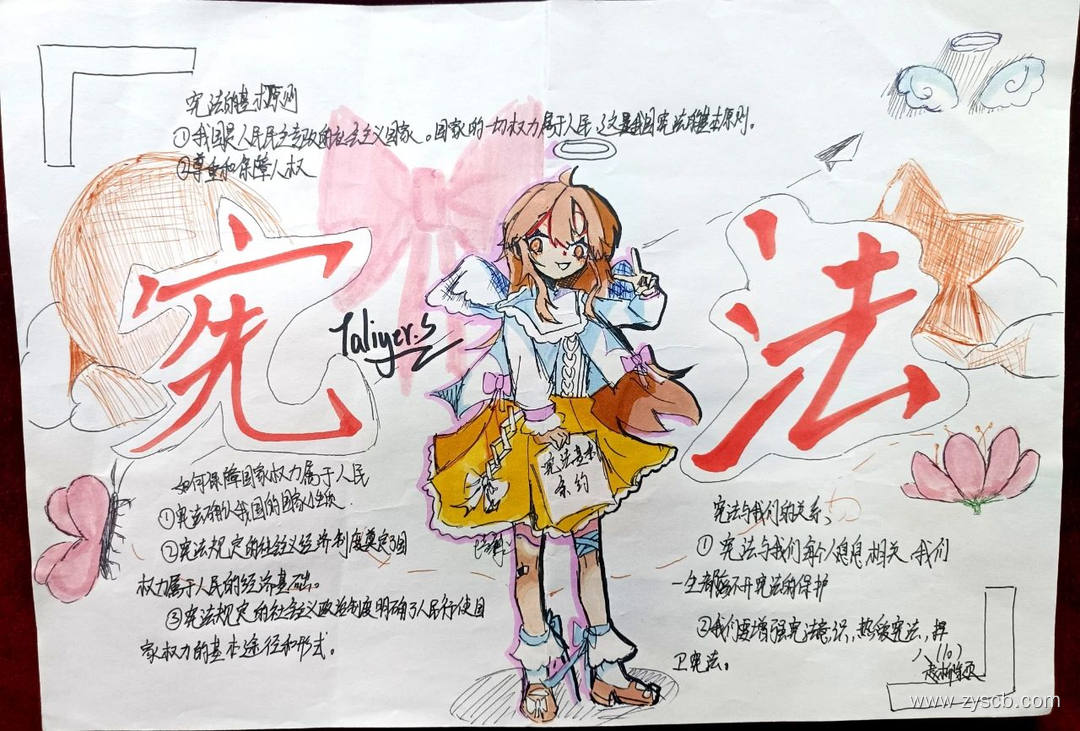 宪法的基本原则
①我国是人民民主专政的社会主义国家。国家的一切权力属于人民,这是我国宪法的基本原则。
②尊重和保障人权
宪法
Taliyer.s
宪法基本
条约
如何保障国家权力属于人民
①宪法确认我国的国家性质.
②宪法规定的社会主义经济制度奠定了国
权力属于人民的经济基础。
③宪法规定的社会主义政治制度明确了人民行使国
家权力的基本途径和形式。
宪法与我们的关系
①宪法与我们每个人息息相关,我们
一生都离不开宪法的保护
②我们要增强宪法意识,热爱宪法,捍
卫宪法。
八(10)
www.zyscb.com